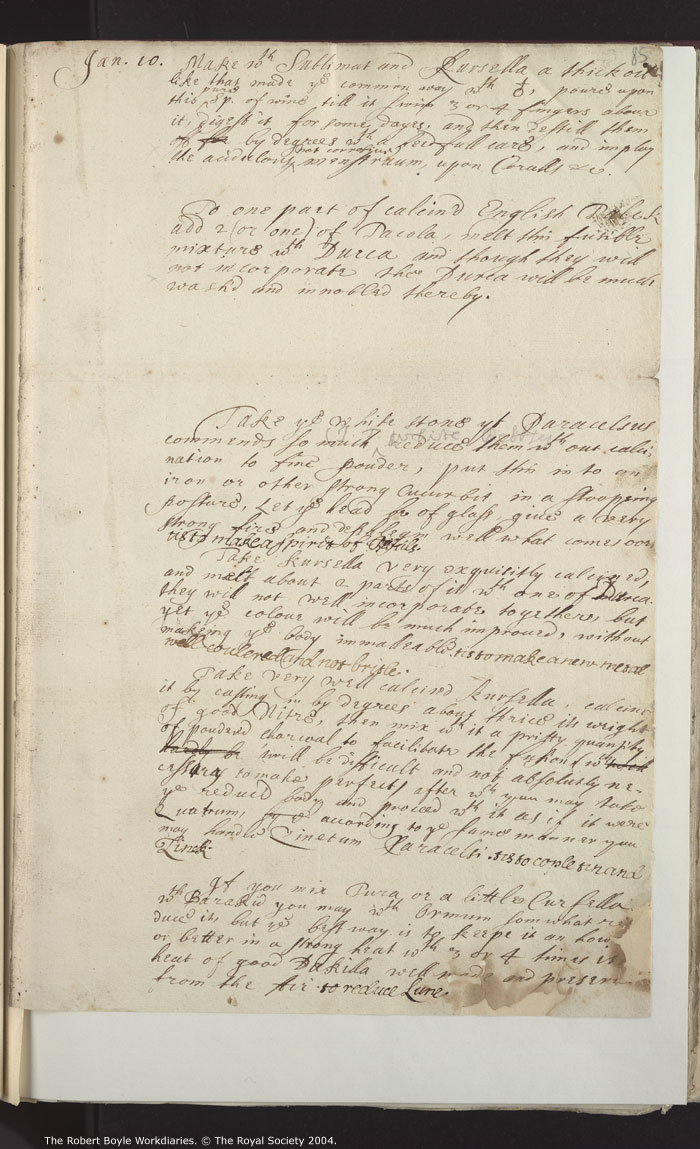 85
Jan. 10. Make wth Sublimat and Kursella a thick oil
like that made ye common way wth ☿, poure upon
this pure Sp. of wine till it swim 3 or 4 fingers above
it, digest it for some dayes, and then destill them
by degrees wth a needfull care, and imploy
the acidulous not corrosive menstruum, upon Coralls &c.
To one part of calcin'd English
add 2 (or one) of Tacola, melt this fusible
mixture wth Durca and though they will
not incorporate the Durca will be much
wash'd and innobled thereby.
Take ye white stone yt Paracelsus
commends so much reduce them wth out calci-
nation to fine pouder, put this in to an
iron or other strong Cucurbit in a stooping
posture, Let ye head be of glass give a very
strong fire and dephlegm well what comes over
tis to make a spirit of
Take Kursella very exquisitly calcined,
and melt about 2 parts of it wth one of Durca.
they will not well incorporate together, but
yet ye colour will be much improued, without
makeing ye body immalleable. tis to make a new metal
well coulered and not britle.
Take very well calcind Kursella, calcine
it by casting in by degrees about thrice its weight
of good Nitre, then mix wth it a pritty quantity
of poudered charcoal to facilitate the fusion (wch
will be difficult and not absolutely ne-
cessary to make perfect) after wch you may take
ye reduc'd body and proceed wth it as if it were
Quatrum, according to ye same manner you
may handle Cinetum Paracelsi. tis to cople tin and
Zink.
If you mix Pura or a little Curfella
wth Barakid you may wth Ormunn somwhat re-
duce it, but ye best way is to keepe it an hour
or better in a strong heat wth 3 or 4 times its
heat of good Dakilla well made and preserv
from the Air to reduce Lune.
The Robert Boyle Workdiaries. © The Royal Society 2004.